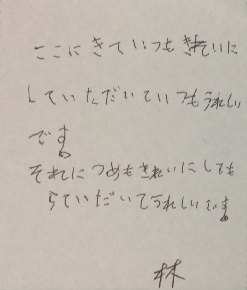 ここにきていつもきれいに
していただいていつもうれしい
です。
それにつめもきれいにしても
らていだいてうれしいです。
林